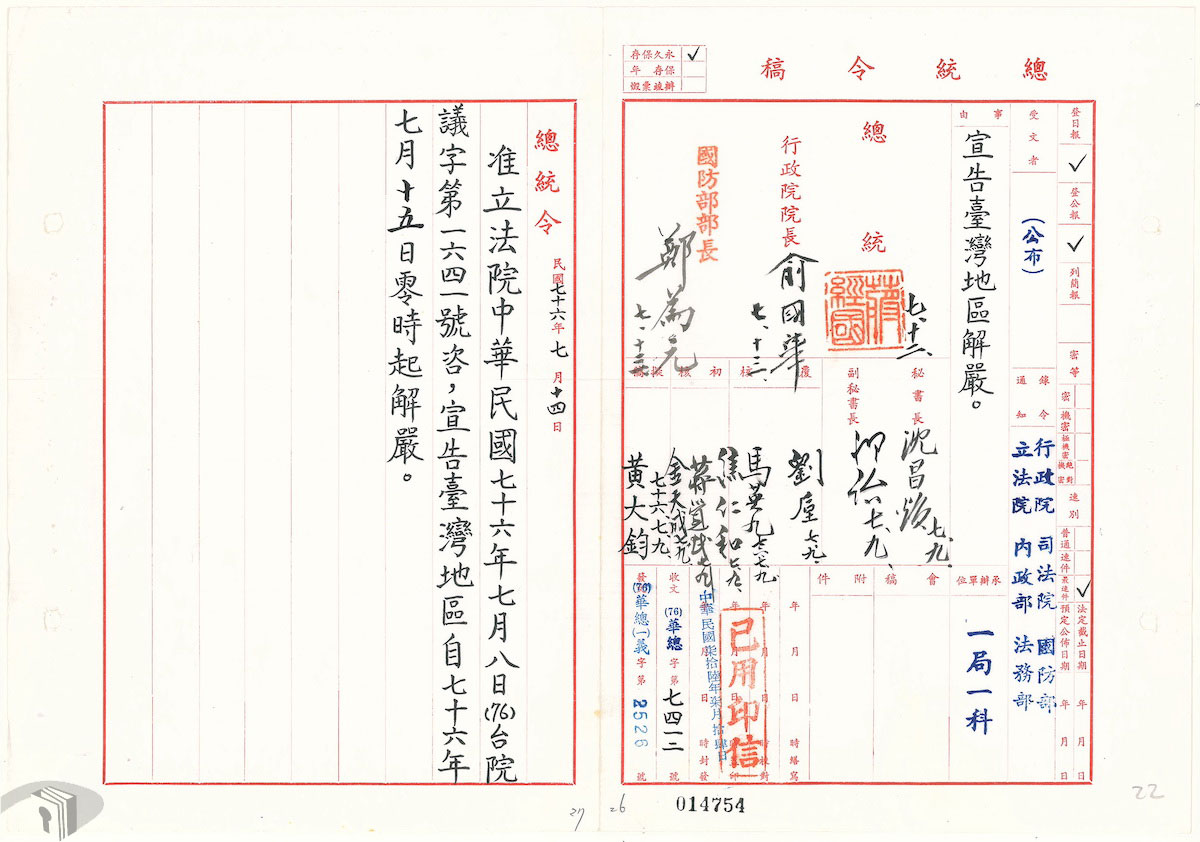 總統令稿
永久保存 ✓
保存 年
辦竣彙燬
登日報 ✓
登公報 ✓
列簡報
密等
密
機密
極機密
絕對機密
速別
普通
速件
最速件 ✓
法定截止日期 年 月 日
預定公佈日期 年 月 日
受文者
(公布)
錄令通知
行政院 司法院 國防部
立法院 內政部 法務部
事由
宣告臺灣地區解嚴。
承辦單位
一局一科
會稿
附件
總統
蔣經國
七、十二、
行政院院長
俞國華
七、十三、
國防部部長
鄭為元
七、十三
秘書長
沈昌煥
七、九、
副秘書長
七、九、
覆核
劉垕
七、九、
馬英九
七六、七、九、
初核
焦仁和
七、九、
擬稿
金天成
七十六、七、九、
黃大鈞
年 月 日 時繕寫
年 月 日 時校對
中華民國柒拾陸年柒月拾肆日
時封發
已用印信
收文 (76)華總 字第 七四一二 號
發文 (76)華總(一)義 字第 2526 號
014754
26
22
總統令
民國七十六年七月十四日
准立法院中華民國七十六年七月八日(76)台院
議字第一六四一號咨，宣告臺灣地區自七十六年
七月十五日零時起解嚴。
27